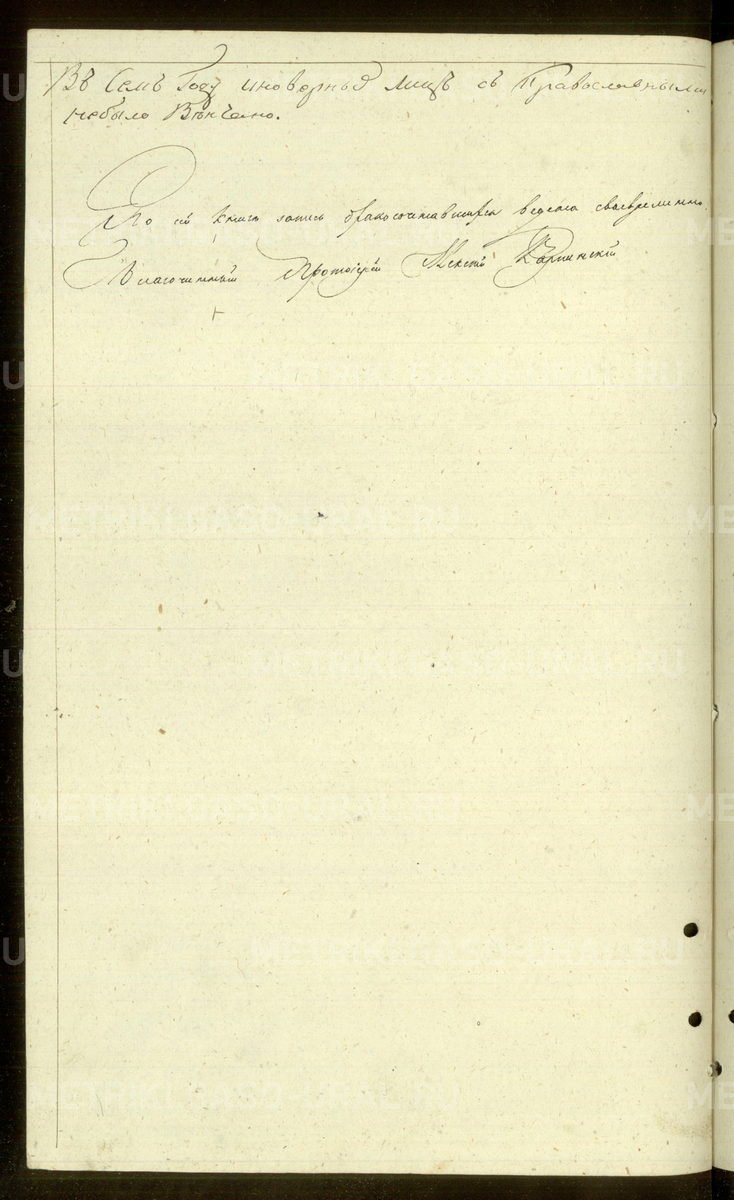 Въ Семъ Году иноверныхъ лицъ съ Православными
небыло Вѣнчано.
По сей книге запись бракосочитавшихся ведена своевременно.
Благочинный Протоіерей Алексій
METRIKI.GASO-URAL.RU